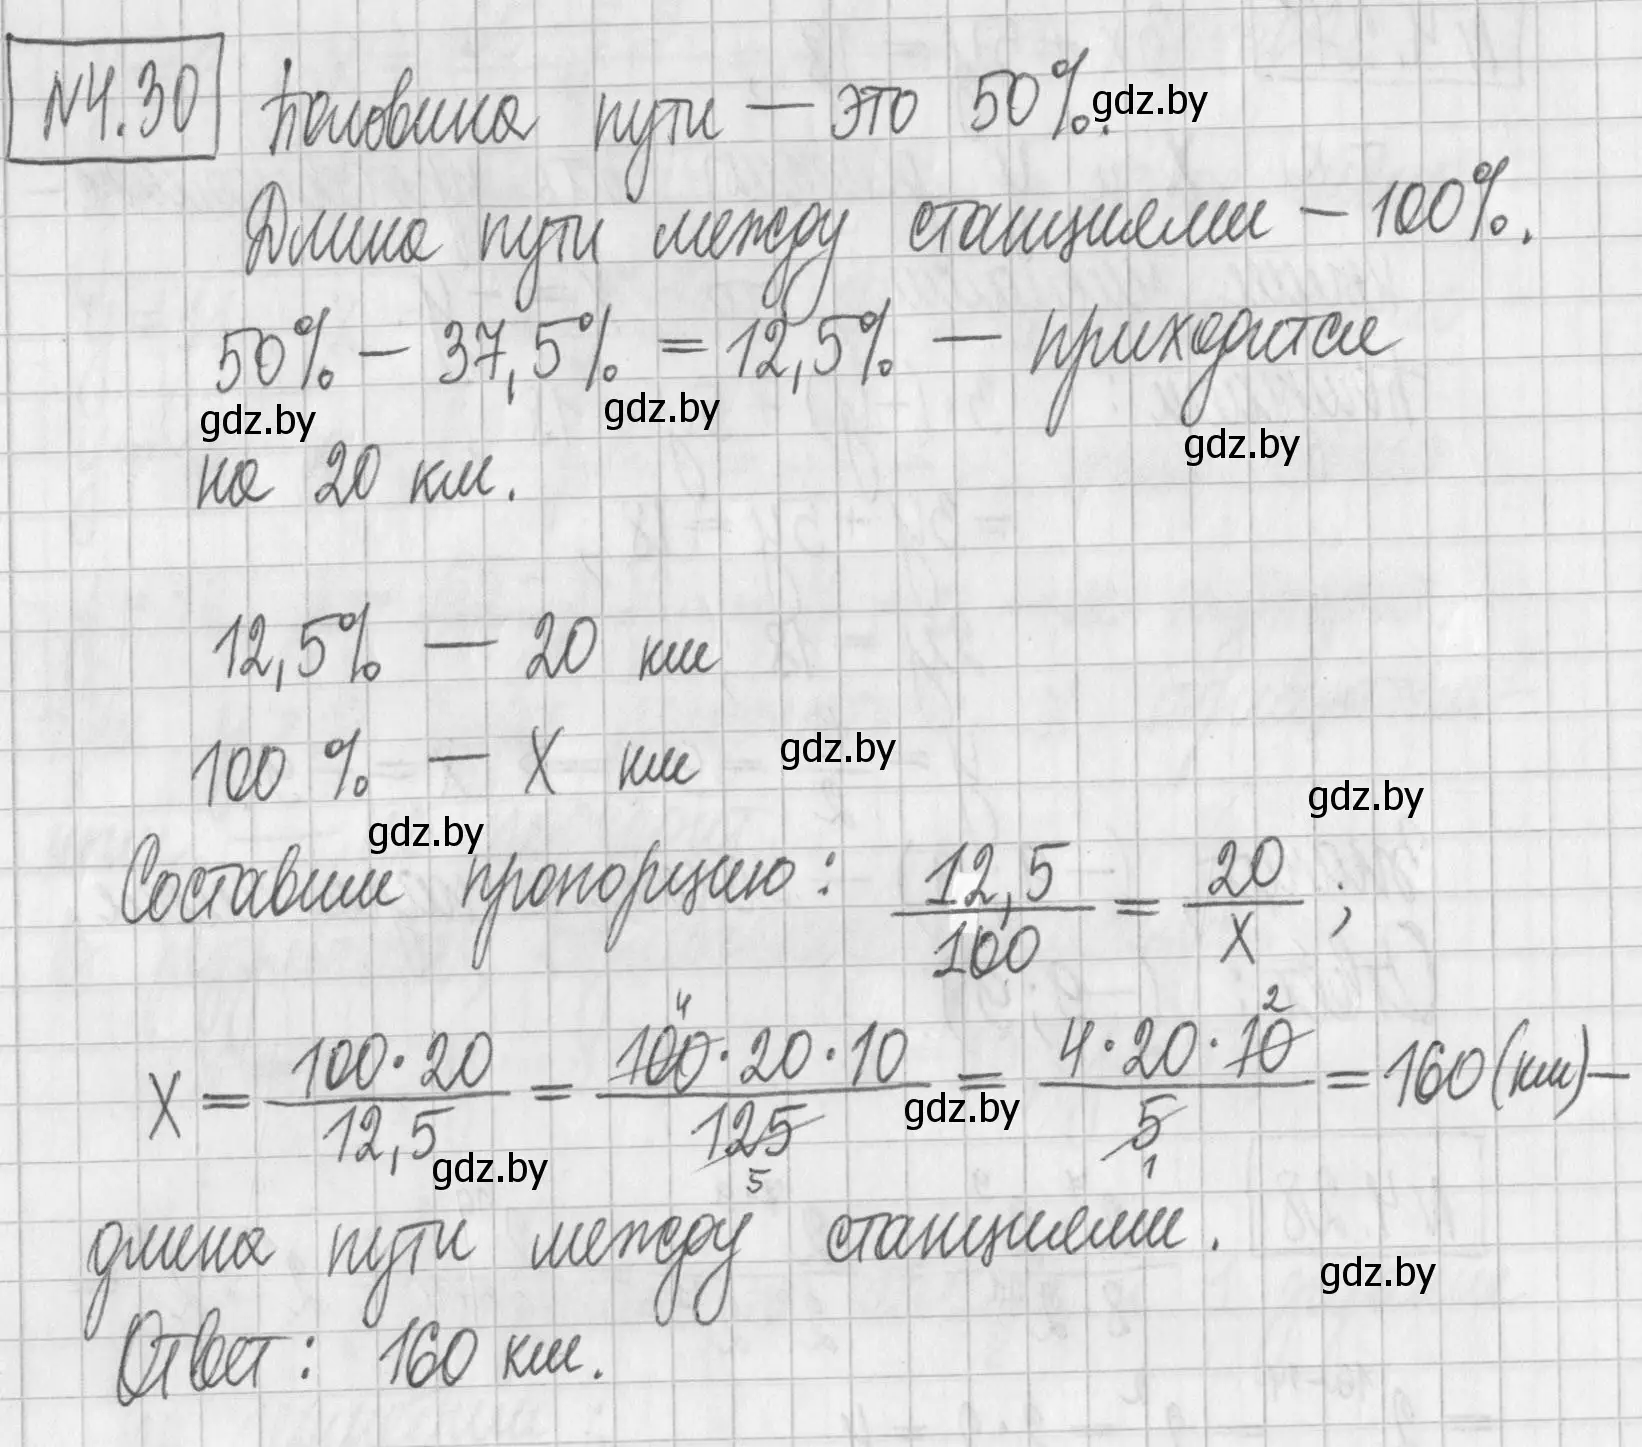 N4.30 Половина пути — это 50%. gdz.by
Длина пути между станциями – 100%.
50% – 37,5% = 12,5% — приходится
gdz.by gdz.by gdz.by
на 20 км.
12,5% — 20 км
100 % — X км gdz.by
gdz.by gdz.by
Составим пропорцию: 12,5/100 = 20/X ;
X = 100·20/12,5 = 100·20·10/125 = 4·20·10/5 = 160 (км) —
4 2
5 1
gdz.by gdz.by
длина пути между станциями.
gdz.by
Ответ: 160 км.